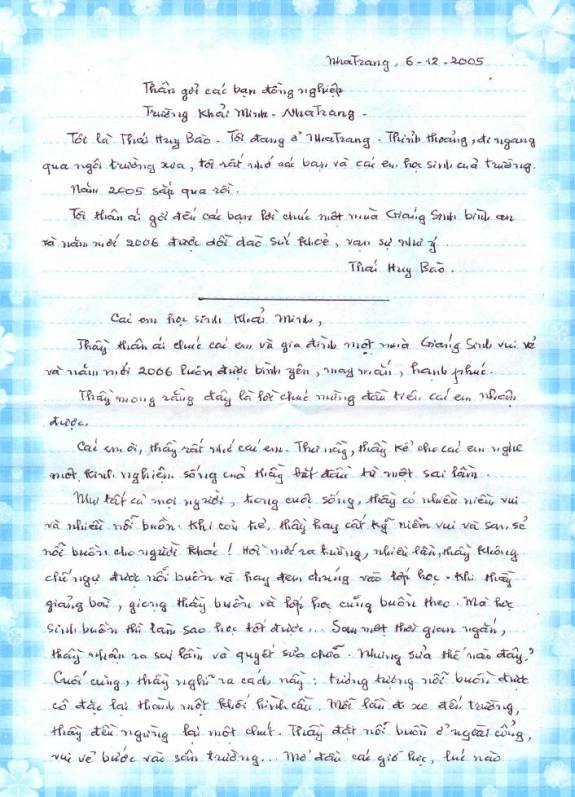 NhaTrang, 6-12-2005
Thân gởi các bạn đồng nghiệp
Trường Khải Minh - NhaTrang -
Tôi là Thái Huy Bảo - Tôi đang ở NhaTrang - Thỉnh thoảng, đi ngang
qua ngôi trường xưa, tôi rất nhớ các bạn và các em học sinh của trường.
Năm 2005 sắp qua rồi.
Tôi thân ái gởi đến các bạn lời chúc một mùa Giáng Sinh bình an
và năm mới 2006 được dồi dào sức khoẻ, vạn sự như ý
Thái Huy Bảo.
Các em học sinh Khải Minh,
Thầy thân ái chúc các em và gia đình một mùa Giáng Sinh vui vẻ
và năm mới 2006 luôn được bình yên, may mắn, hạnh phúc.
Thầy mong rằng đây là lời chúc mừng đầu tiên các em nhận
được.
Các em ơi, thầy rất nhớ các em. Thư này, thầy kể cho các em nghe
một kinh nghiệm sống của thầy bắt đầu từ một sai lầm.
Như tất cả mọi người, trong cuộc sống, thầy có nhiều niềm vui
và nhiều nỗi buồn. Khi còn trẻ, thầy hay cất kỹ niềm vui và san sẻ
nỗi buồn cho người khác! Hồi mới ra trường, nhiều lần, thầy không
chế ngự được nỗi buồn và hay đem chúng vào lớp học. Khi thầy
giảng bài, giọng thầy buồn và lớp học cũng buồn theo. Mà học
sinh buồn thì làm sao học tốt được... Sau một thời gian ngắn,
thầy nhận ra sai lầm và quyết sửa chữa. Nhưng sửa thế nào đây?
Cuối cùng, thầy nghĩ ra cách này: tưởng tượng nỗi buồn được
cô đặc lại thành một khối hình cầu. Mỗi lần đi xe đến trường,
thầy đều ngưng lại một chút. Thầy đặt nỗi buồn ở ngoài cổng,
vui vẻ bước vào sân trường... Mở đầu các giờ học, lúc nào